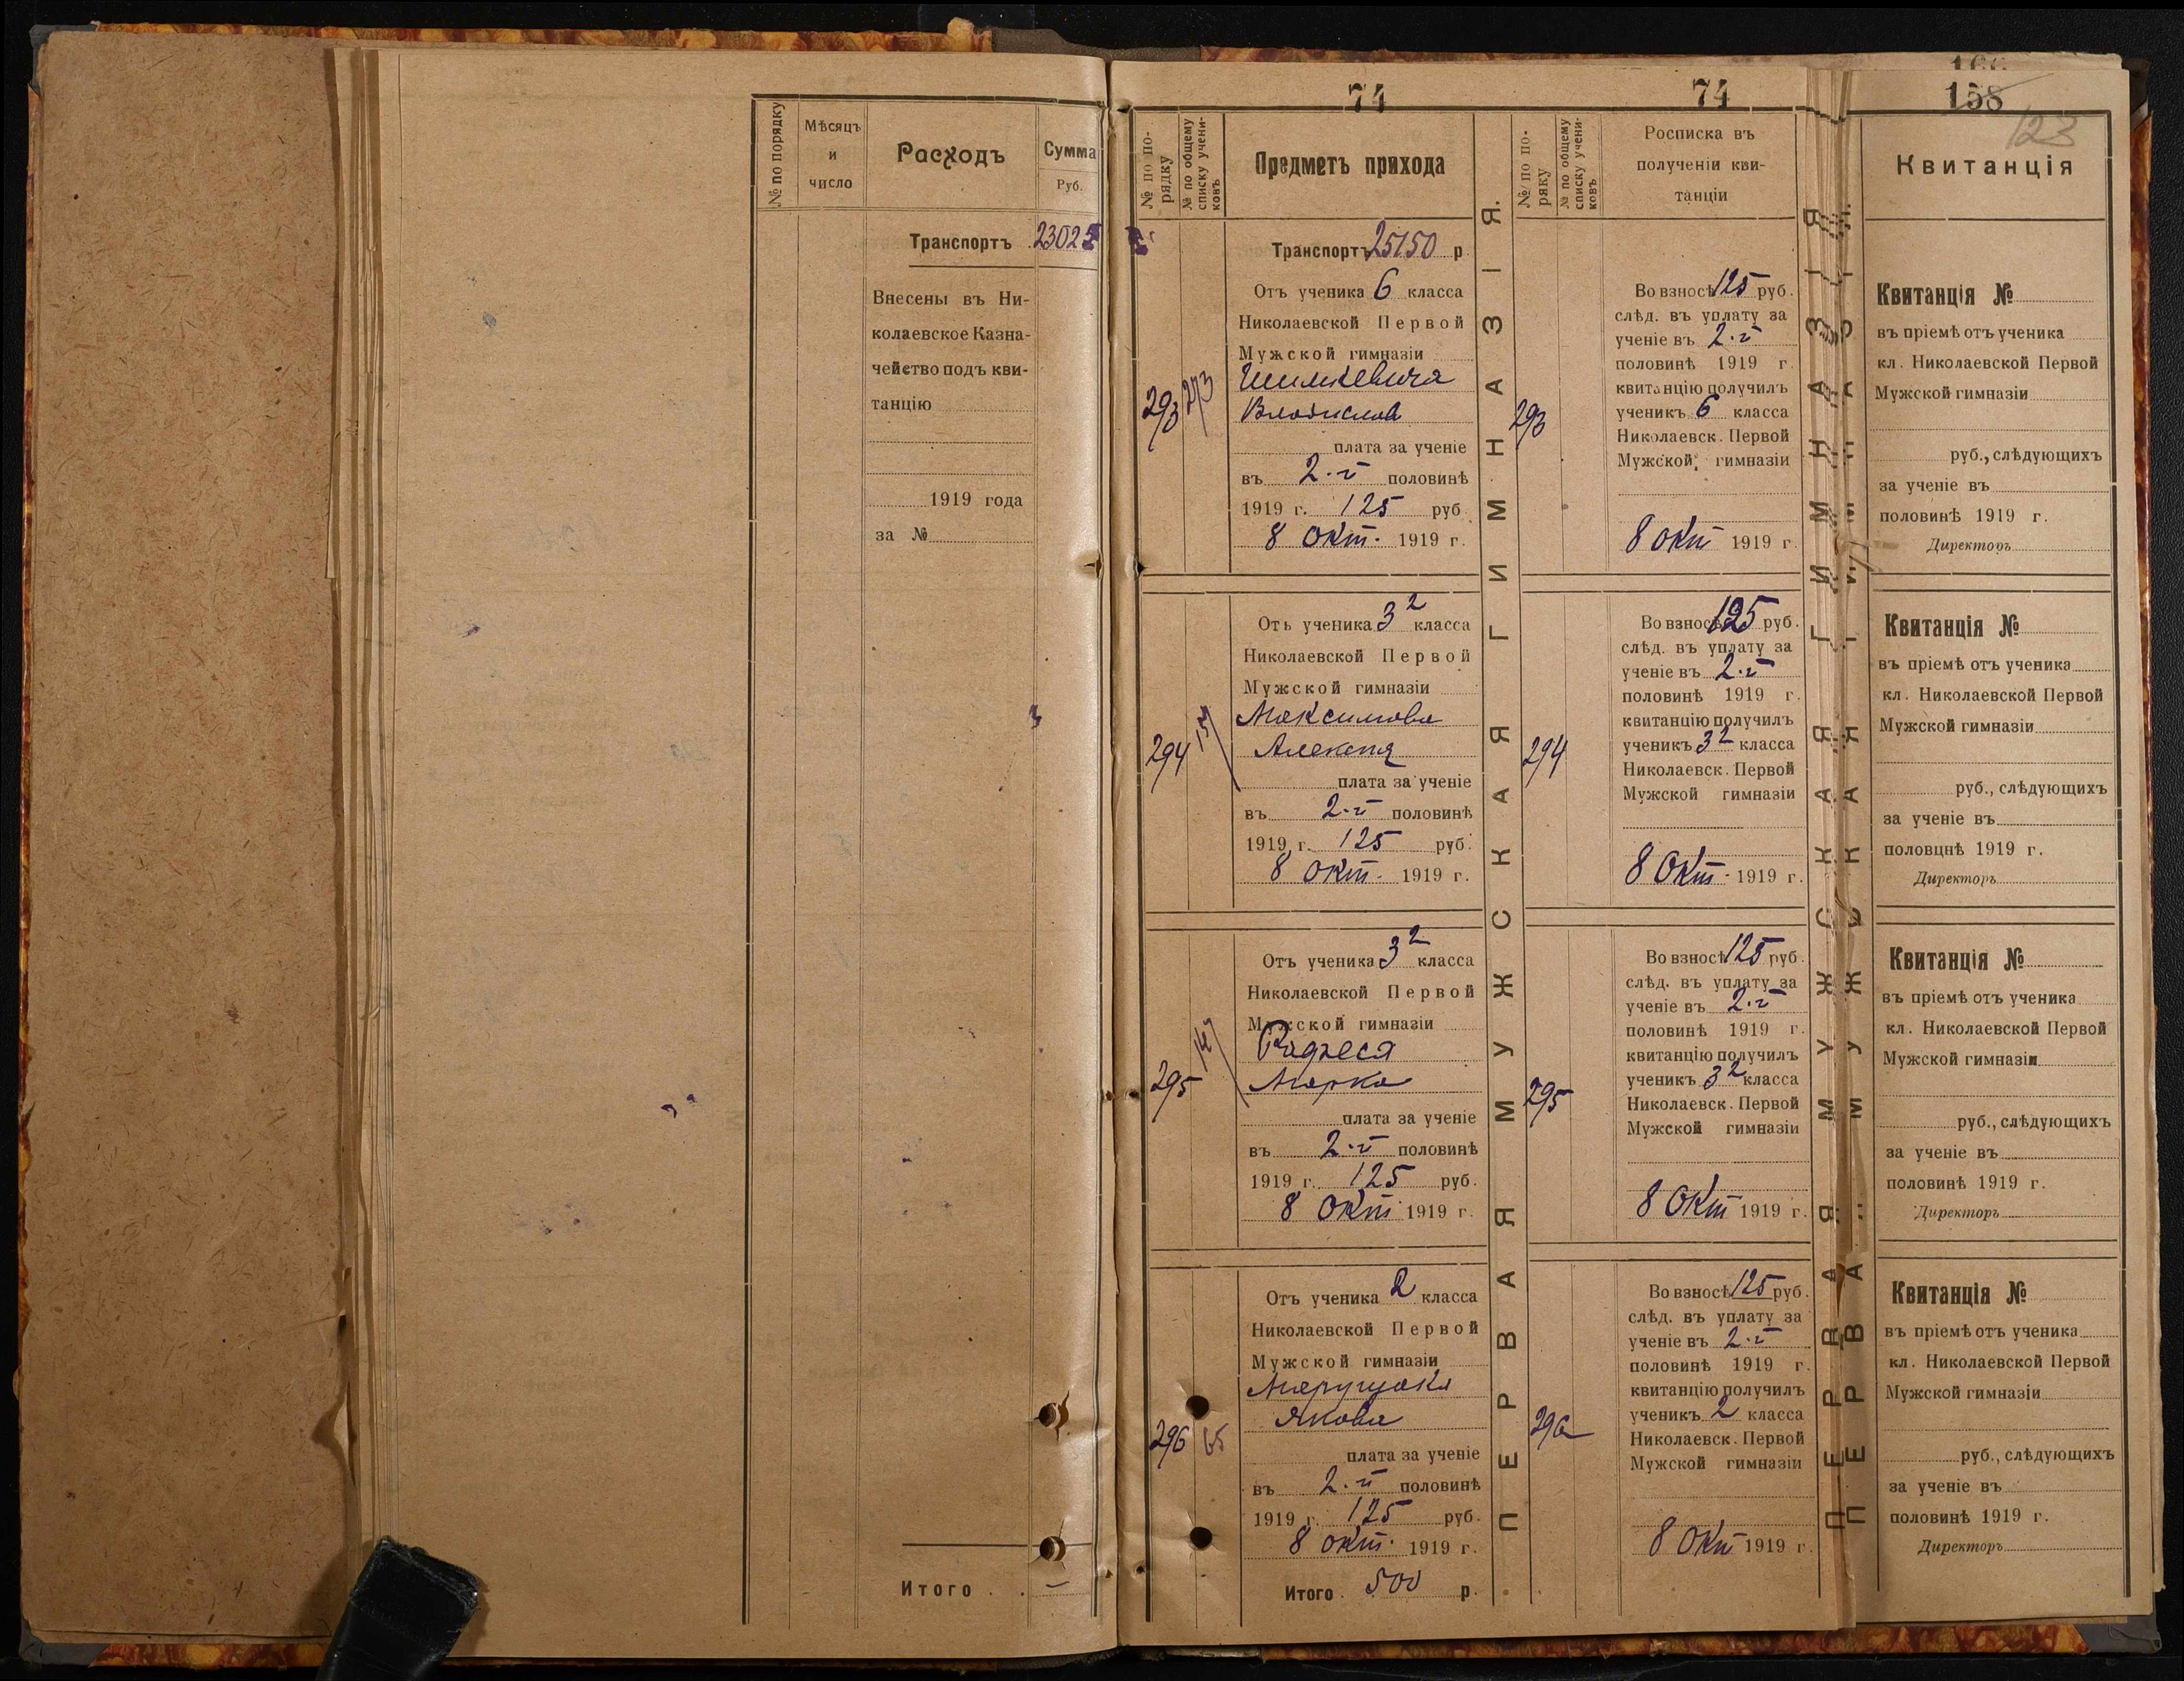 № по порядку
Мѣсяцъ
и
число
Расходъ
Сумма
Руб.
Транспортъ 23025
Внесены въ Ни-
колаевское Казна-
чейство подъ кви-
танцію
1919 года
за №
Итого . . —
74
№ по по-
рядку
№ по общему
списку учени-
ковъ
Предметъ прихода
Транспортъ 25150 р
293
273
Отъ ученика 6 класса
Николаевской Первой
Мужской гимназіи
Шимкевича
Владислава
плата за ученіе
въ 2-й половинѣ
1919 г. 125 руб
8 Окт. 1919 г.
294
Отъ ученика 3² класса
Николаевской Первой
Мужской гимназіи
Максимова
Алексѣя
плата за ученіе
въ 2-й половинѣ
1919 г. 125 руб.
8 Окт. 1919 г.
295
Отъ ученика 3² класса
Николаевской Первой
Мужской гимназіи
Марка
плата за ученіе
въ 2-й половинѣ
1919 г. 125 руб.
8 Окт 1919 г.
296
65
Отъ ученика 2 класса
Николаевской Первой
Мужской гимназіи
Якова
плата за ученіе
въ 2-й половинѣ
1919 г. 125 руб.
8 Окт. 1919 г.
Итого . 500 р.
ПЕРВАЯ МУЖСКАЯ ГИМНАЗІЯ.
74
№ по по-
ряку
№ по общему
списку учени-
ковъ
Росписка въ
полученіи кви-
танціи
293
Во взносѣ 125 руб.
слѣд. въ уплату за
ученіе въ 2-й
половинѣ 1919 г.
квитанцію получилъ
ученикъ 6 класса
Николаевск. Первой
Мужской гимназіи
8 Окт 1919 г.
294
Во взносѣ 125 руб.
слѣд. въ уплату за
ученіе въ 2-й
половинѣ 1919 г.
квитанцію получилъ
ученикъ 3² класса
Николаевск. Первой
Мужской гимназіи
8 Окт. 1919 г.
295
Во взносѣ 125 руб.
слѣд. въ уплату за
ученіе въ 2-й
половинѣ 1919 г.
квитанцію получилъ
ученикъ 3² класса
Николаевск. Первой
Мужской гимназіи
8 Окт 1919 г.
296
Во взносѣ 125 руб.
слѣд. въ уплату за
ученіе въ 2-й
половинѣ 1919 г.
квитанцію получилъ
ученикъ 2 класса
Николаевск. Первой
Мужской гимназіи
8 Окт 1919 г.
ПЕРВАЯ МУЖСКАЯ ГИМНАЗІЯ
158
123
Квитанція
Квитанція №
въ пріемѣ отъ ученика
кл. Николаевской Первой
Мужской гимназіи
руб., слѣдующихъ
за ученіе въ
половинѣ 1919 г.
Директоръ
Квитанція №
въ пріемѣ отъ ученика
кл. Николаевской Первой
Мужской гимназіи
руб., слѣдующихъ
за ученіе въ
половцнѣ 1919 г.
Директоръ
Квитанція №
въ пріемѣ отъ ученика
кл. Николаевской Первой
Мужской гимназіи
руб., слѣдующихъ
за ученіе въ
половинѣ 1919 г.
Директоръ
Квитанція №
въ пріемѣ отъ ученика
кл. Николаевской Первой
Мужской гимназіи
руб., слѣдующихъ
за ученіе въ
половинѣ 1919 г.
Директоръ